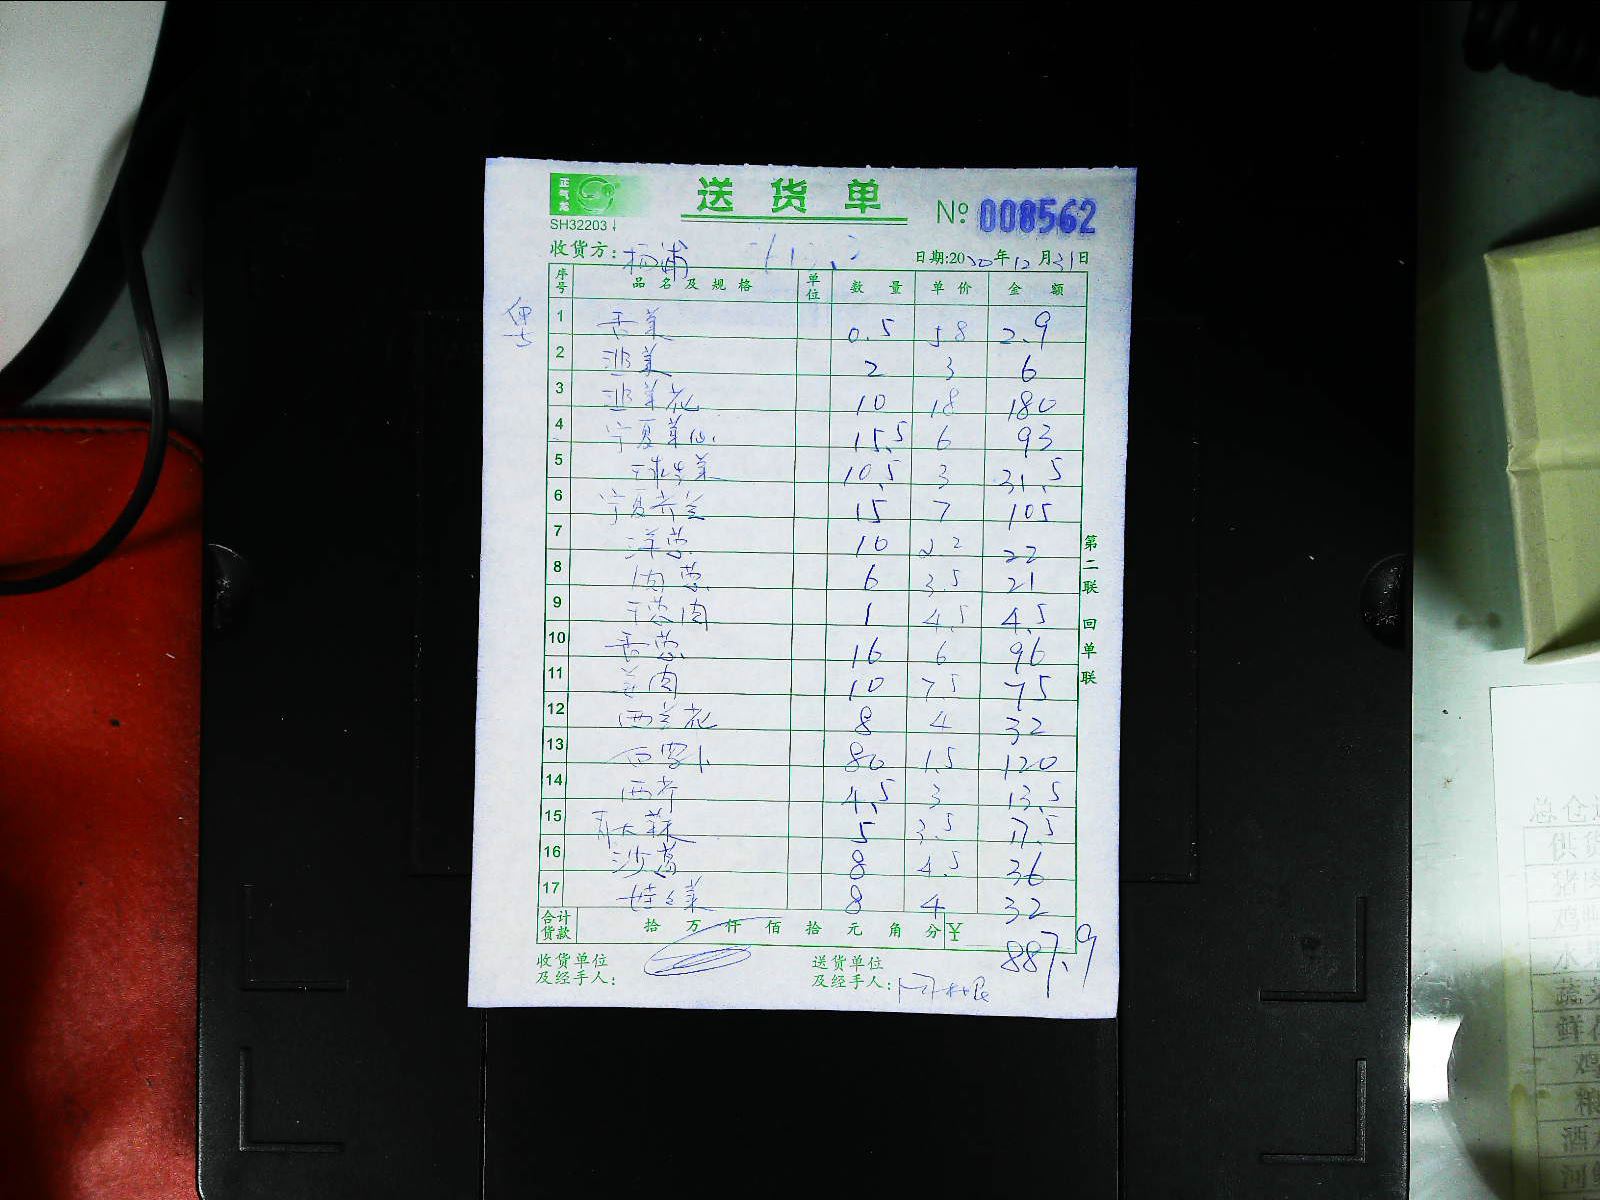 正气龙
送货单
№ 008562
SH32203
收货方: 杨浦
日期:2020年12月31日
序号 品名及规格 单位 数量 单价 金额
1 香菜 0.5 58 2.9
2 韭菜 2 3 6
3 韭菜花 10 18 180
4 宁夏菜心 15.5 6 93
5 10.5 3 31.5
6 宁夏芥兰 15 7 105
7 洋葱 10 2.2 22
8 肉葱 6 3.5 21
9 干葱肉 1 4.5 4.5
10 香葱 16 6 96
11 姜肉 10 7.5 75
12 西兰花 8 4 32
13 白萝卜 80 1.5 120
14 西芹 4.5 3 13.5
15 青大蒜 5 3.5 17.5
16 沙葛 8 4.5 36
17 娃々菜 8 4 32
第二联 回单联
合计货款 拾 万 仟 佰 拾 元 角 分 ¥ 887.9
收货单位及经手人:
送货单位及经手人:
总仓
供货
猪肉
鸡
水
蔬菜
鲜
鸡
粮
酒
河